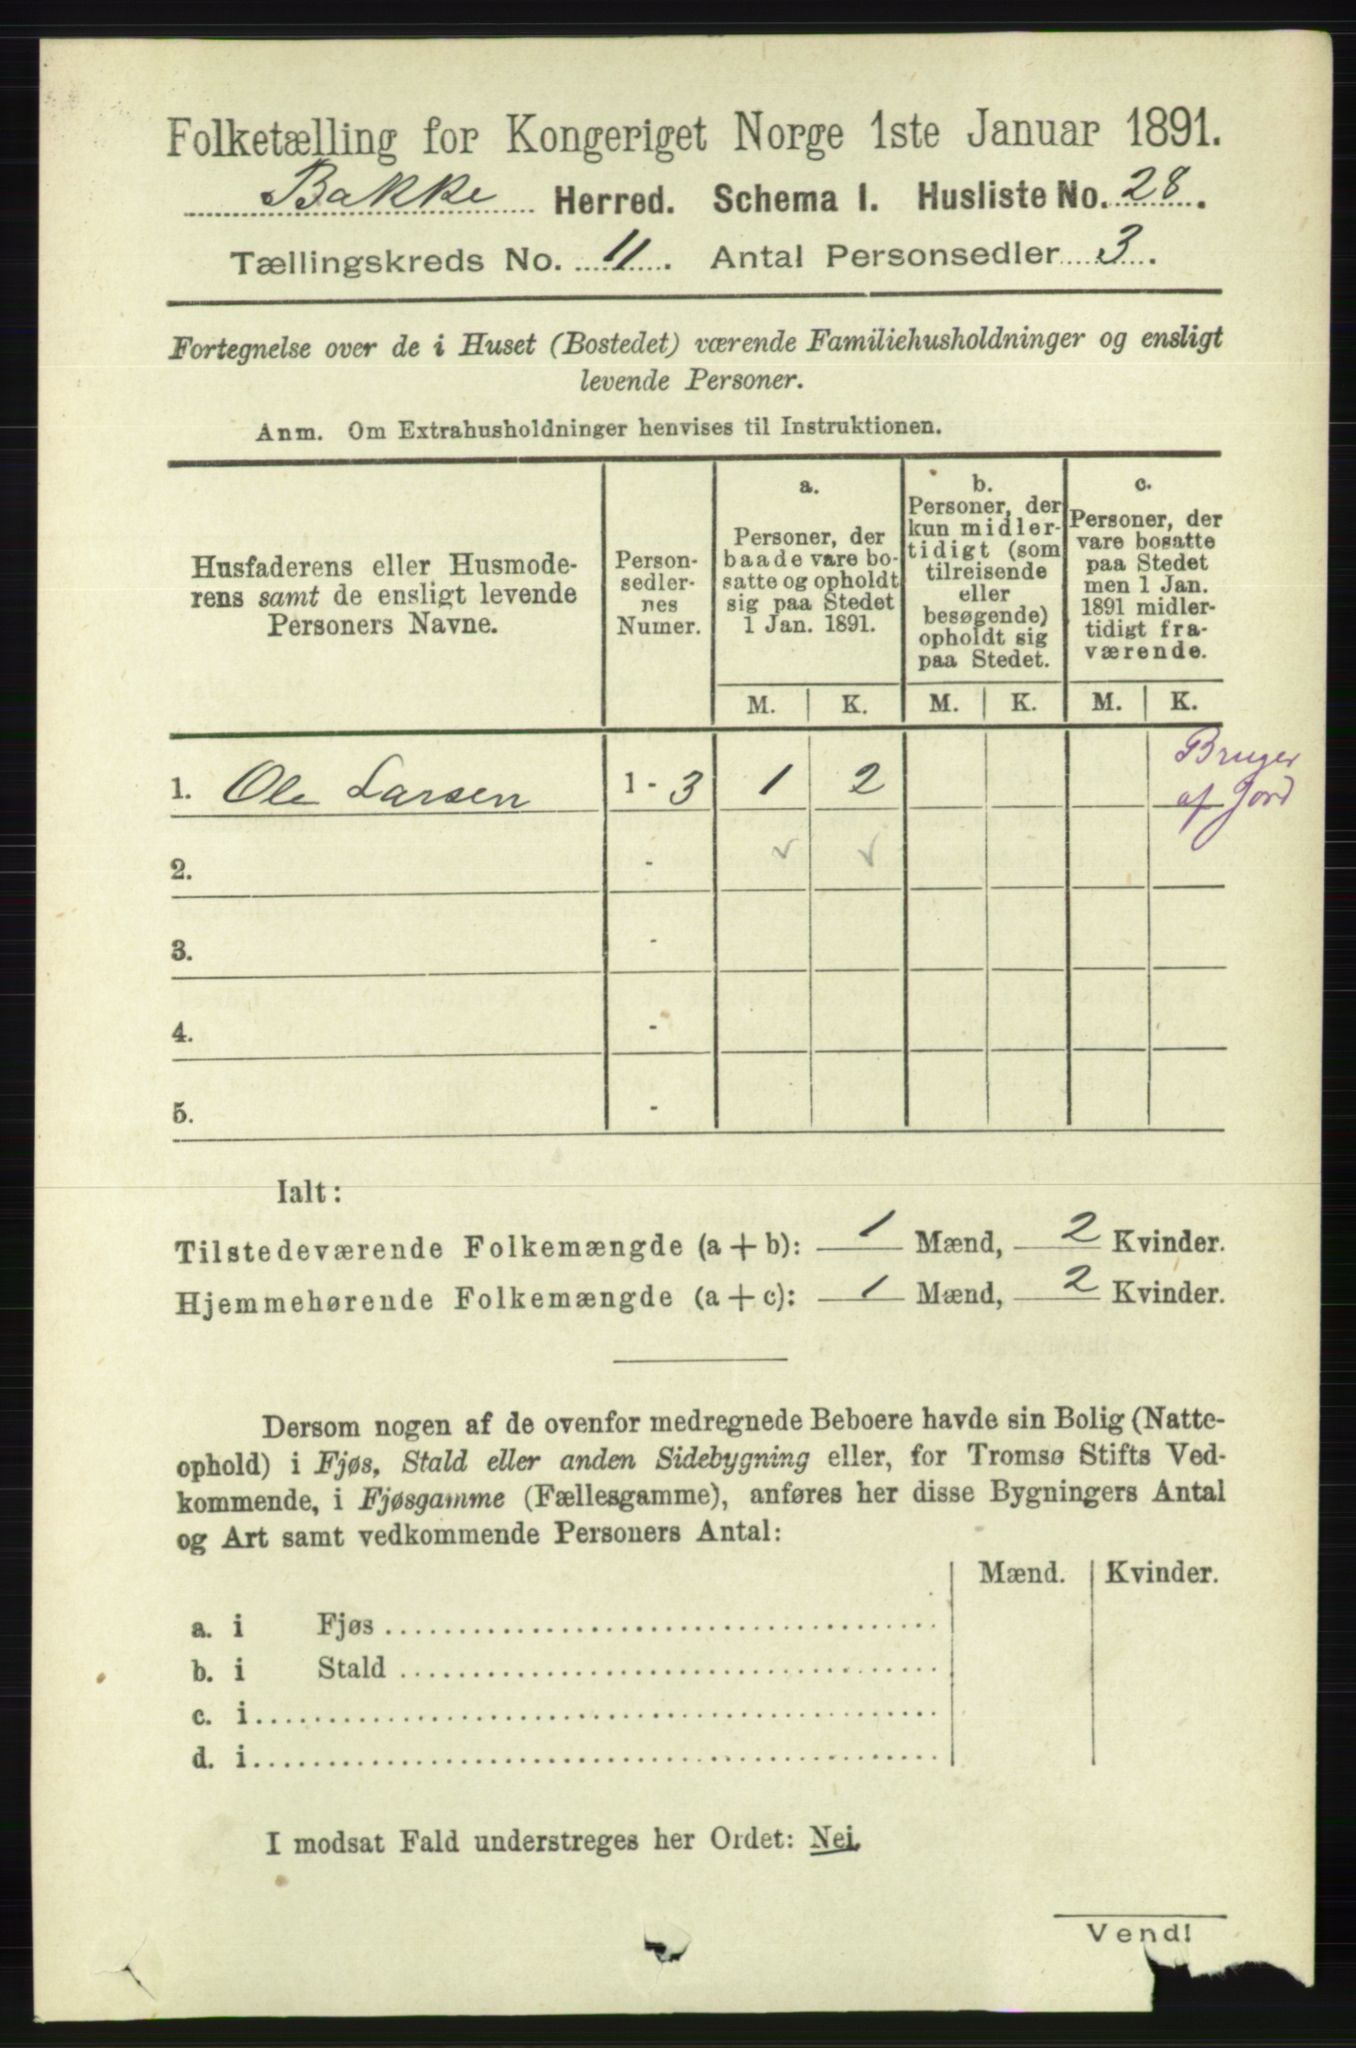 Folketælling for Kongeriget Norge 1ste Januar 1891.
Bakke Herred. Schema 1. Husliste No. 28.
Tællingskreds No. 11. Antal Personsedler 3.
Fortegnelse over de i Huset (Bostedet) værende Familiehusholdninger og ensligt
levende Personer.
Anm. Om Extrahusholdninger henvises til Instruktionen.
Husfaderens eller Husmode-
rens samt de ensligt levende
Personers Navne.
Person-
sedler-
nes
Numer.
a.
Personer, der
baade vare bo-
satte og opholdt
sig paa Stedet
1 Jan. 1891.
b.
Personer, der
kun midler-
tidigt (som
tilreisende
eller
besøgende)
opholdt sig
paa Stedet.
c.
Personer, der
vare bosatte
paa Stedet
men 1 Jan.
1891 midler-
tidigt fra-
værende.
M. K. M. K. M. K.
1. Ole Larsen 1 - 3 1 2
Bruger
af Jord
2. - ✓ ✓
3. -
4. -
5. -
Ialt:
Tilstedeværende Folkemængde (a+b): 1 Mænd, 2 Kvinder.
Hjemmehørende Folkemængde (a+c): 1 Mænd, 2 Kvinder.
Dersom nogen af de ovenfor medregnede Beboere havde sin Bolig (Natte-
ophold) i Fjøs, Stald eller anden Sidebygning eller, for Tromsø Stifts Ved-
kommende, i Fjøsgamme (Fællesgamme), anføres her disse Bygningers Antal
og Art samt vedkommende Personers Antal:
Mænd. Kvinder.
a. i Fjøs
b. i Stald
c. i
d. i
I modsat Fald understreges her Ordet: Nei.
Vend!